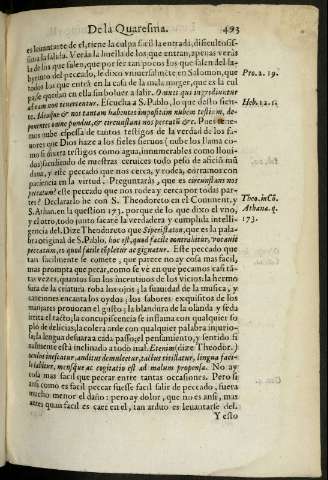 De la Quaresma. 493
es leuantarse de el, tiene la culpa facil la entrada, dificultosis-
sima la salida. Verás la huella de los que entran, apenas verás
la de los que salen, que por ser tan pocos los que salen del la-
byrinto del peccado, le dixo vniuersalmẽte en Salomon, que Pro. 2. 19.
todos los que entrã en la casa de la mala muger, que es la cul
pa, se quedan en ella sin boluer a salir. Omnes qui ingrediuntur
ad eam non reuertentur. Escucha a S. Pablo, lo que desto sien- Heb. 12. 1.
te. Ideoque & nos tantam habentes impositam nubem testium, de-
ponentes omne pondus, & circunstans nos peccatũ &c. Pues tene-
mos nube espesa de tantos testigos de la verdad de los fa-
uores que Dios haze a los fieles sieruos (nube los llama co-
mo si dixera testigos como agua, innumerables como lloui-
dos) sacudiendo de nuestras ceruices todo peso de aficiõ mũ
dana, y este peccado que nos cerca, y rodea, corramos con
paciencia en la virtud. Preguntarás, que es circunstans nos
peccatum? este peccado que nos rodea y cerca por todas par-
tes? Declararlo he con S. Theodoreto en el Coment. y Theo. in Cõ.
S. Athan. en la question 173. porque de lo que dixo el vno, Athana. q.
y el otro, todo junto sacaré la verdadera y cumplida inteli- 173.
gencia del. Dize Theodoreto que Superistaton, que es la pala-
bra original de S. Pablo, hoc est, quod facile contrahitur, vocauit
peccatum, eo quod facile espletur ac gignatur. Este peccado que
tan facilmente se comete, que parece no ay cosa mas facil,
mas prompta que pecar, como se ve en que pecamos casi tã-
tas vezes, quantos son los incentiuos de los vicios. la hermo
sura de la criatura roba los ojos; la suauidad de la musica, y
canciones encanta los oydos; los sabores exquisitos de los
manjares prouocan el gusto; la blandura de la olanda y seda
irrita el tacto; la concupiscencia se inflama con qualquier so
plo de delicias, la colera arde con qualquier palabra injurio-
sa, la lengua desuara a cada passo; el pensamiento, y sentido fi
nalmente está inclinado a todo mal. Etenim (dize Theodor.)
oculus inescatur, auditus demulcetur, tactus titillatur, lingua facil-
lè labitur, mensque ac cogitatio est ad malum propensa. No ay
cosa mas facil que peccar entre tantas occasiones. Pero si
ansi como es facil peccar fuesse facil salir de peccado, fuera
mucho menor el daño: pero ay dolor, que no es ansi, mas
antes quan facil es caer en el, tan arduo es leuantarse del.
Y esto